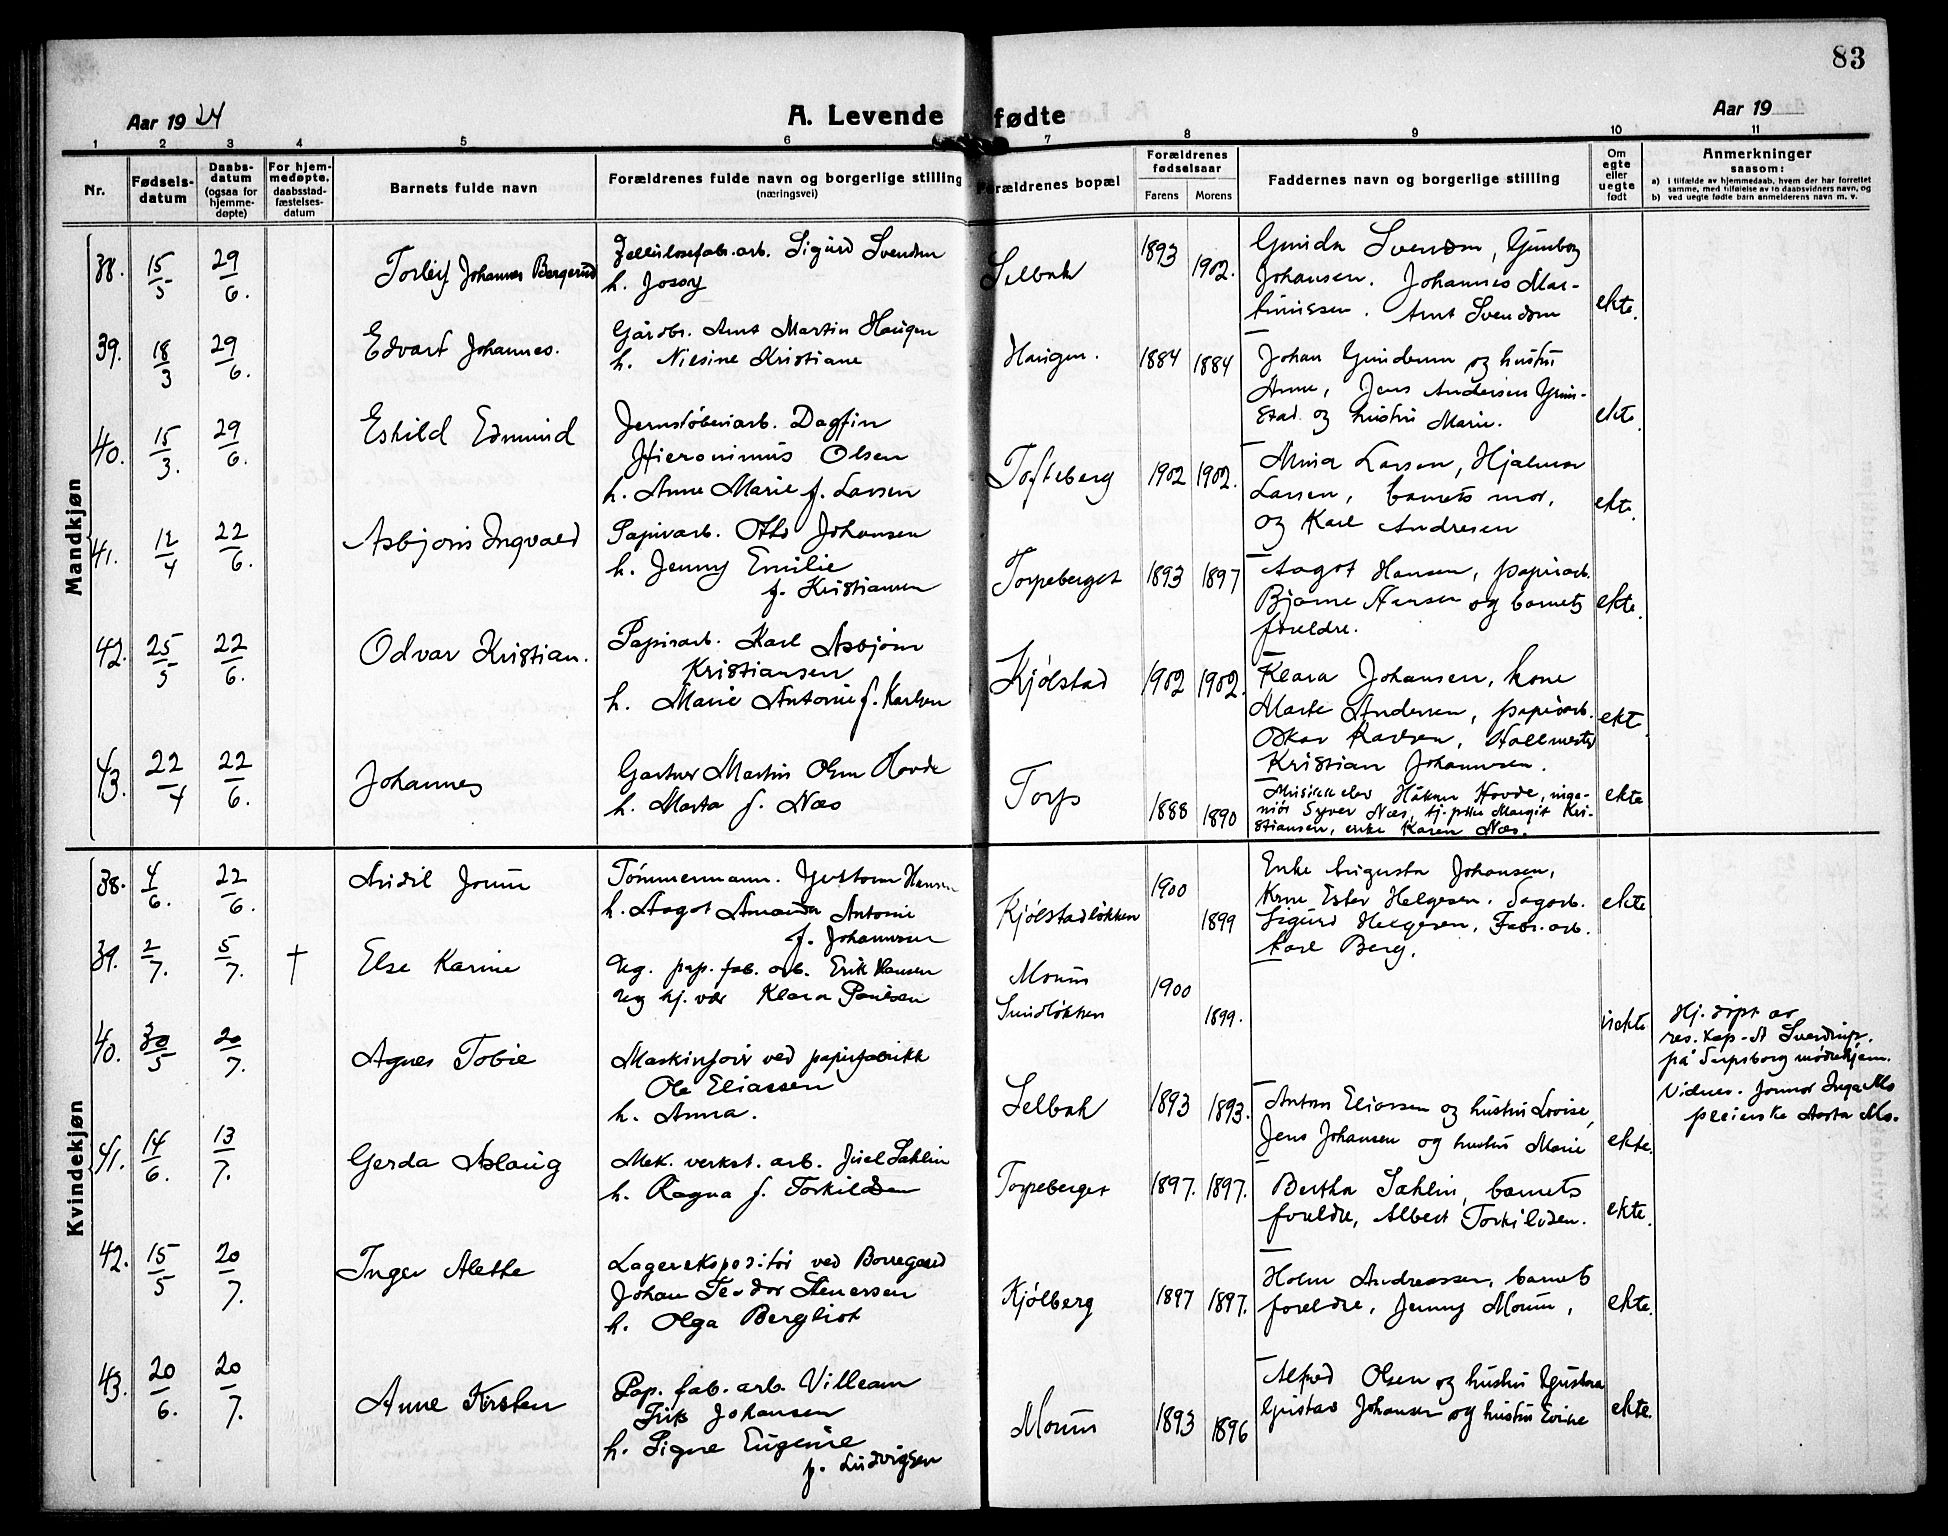 83
Aar 1924
A. Levende fødte
Aar 19
1 2 3 4 5 6 7 8 9 10 11
Nr.
Fødsels-
datum
Daabs-
datum
(ogsaa for
hjemme-
døpte)
For hjem-
medøpte.
daabsstad-
fæstelses-
datum
Barnets fulde navn
Forældrenes fulde navn og borgerlige stilling
(næringsvei)
Forældrenes bopæl
Forældrenes
fødselsaar
Farens Morens
Faddernes navn og borgerlige stilling
Om
egte
eller
uegte
født
Anmerkninger
saasom:
a) i tilfælde av hjemmedaab, hvem der har forrettet
samme, med tilføielse av to daabsvidners navn, og
b) ved uegte fødte barn anmelderens navn m. v.
Mandkjøn
38. 15/5 29/6. Torleif Johannes Bergerud
Sigurd Svendsen
h. Jossy
Selbak 1893 1902.
Svendsen,
Johansen. Johannes Mar-
tinissen. Arnt Svendsen
ekte.
39. 18/3 29/6. Edvart Johannes.
Gårdbr. Arnt Martin Haugen
h. Nilsine Kristiane
Haugen. 1884 1884
Johan Gundersen og hustru
Anne, Jens Andersen Grim-
stad og hustru Marie.
ekte.
40. 15/3. 29/6. Eskild Edmund
Jernstöberiarb. Dagfin
Hieronimus Olsen
h. Anne Marie f. Larsen
Tofteberg 1902 1902.
Larsen, Hjalmar
Larsen, barnets mor,
og Karl Andresen
ekte.
41. 12/4 22/6. Asbjørn Ingvald
Papirarb. Otto Johansen
h. Jenny Emilie
f. Kristiansen
Torpeberget 1893 1897
Aagot Hansen, papirarb.
Bjarne Hansen og barnets
foreldre.
ekte.
42. 25/5 22/6. Odvar Kristian.
Papirarb. Karl Asbjørn
Kristiansen
h. Marie Antonie f. Karlsen
Kjølstad 1902 1902.
Klara Johansen, kone
Marte Andersen, papirarb.
Oskar Karlsen, Stallmester
Kristian Johannesen.
ekte
43. 22/4 22/6. Johannes
Gartner Martin Olsen Hovde
h. Marta f. Næs
Torp 1888 1890
Musikkelev Håkon Hovde, inge-
niør Syver Næs, tj. pike Margit Kri-
stiansen, enke Karen Næs.
ekte
Kvindekjøn
38. 4/6. 22/6. Aridil Jorun
Tömmermann. Gustav Hansen
h. Aagot Amanda Antonie
f. Johannesen
Kjølstadløkken 1900 1899
Enke Augusta Johansen,
Kone Ester Helgesen. Sagarb.
Sigurd Helgesen, Fabr. arb.
Karl Berg.
ekte
39. 2/7. 5/7. † Else Karine
Ug. pap. fab. arb. Erik Hansen
ug hj. vær Klara Paulsen
Moum
Sundløkken
1900 1899.
uekte
Hj. döpt av
res. kap. Sverdrup.
på Sarpsborg mödrehjem.
Vidner. Jormor Inga Mo
pleierske Aasta Mo.
40. 30/5 20/7. Agnes Tobie
Maskinförer ved papirfabrikk
Ole Eliassen
h. Anna.
Selbak 1893 1893.
Anton Eliassen og hustru Lovise,
Jens Johansen og hustru Marie
ekte.
41. 14/6. 13/7. Gerda Aslaug
Mek. verkst. arb. Juel Sahlin
h. Ragna f. Torkildsen
Torpeberget 1897. 1897.
Bertha Sahlin, barnets
foreldre, Albert Torkildsen.
ekte.
42. 15/5 20/7. Inger Alette
Lagerekspeditör ved Borregaard
Johan Teodor Stenersen
h. Olga Bergliot
Kjølberg 1897 1897.
Holm Andreassen, barnets
foreldre, Jenny Moum,
ekte.
43. 20/6. 20/7. Anne Kirsten
Pap. fab. arb. Villeam
Friis Johansen
h. Signe Eugenie
f. Ludvigsen
Moum 1893 1896
Alfred Olsen og hustru Gustava
Gustav Johansen og hustru
ekte.